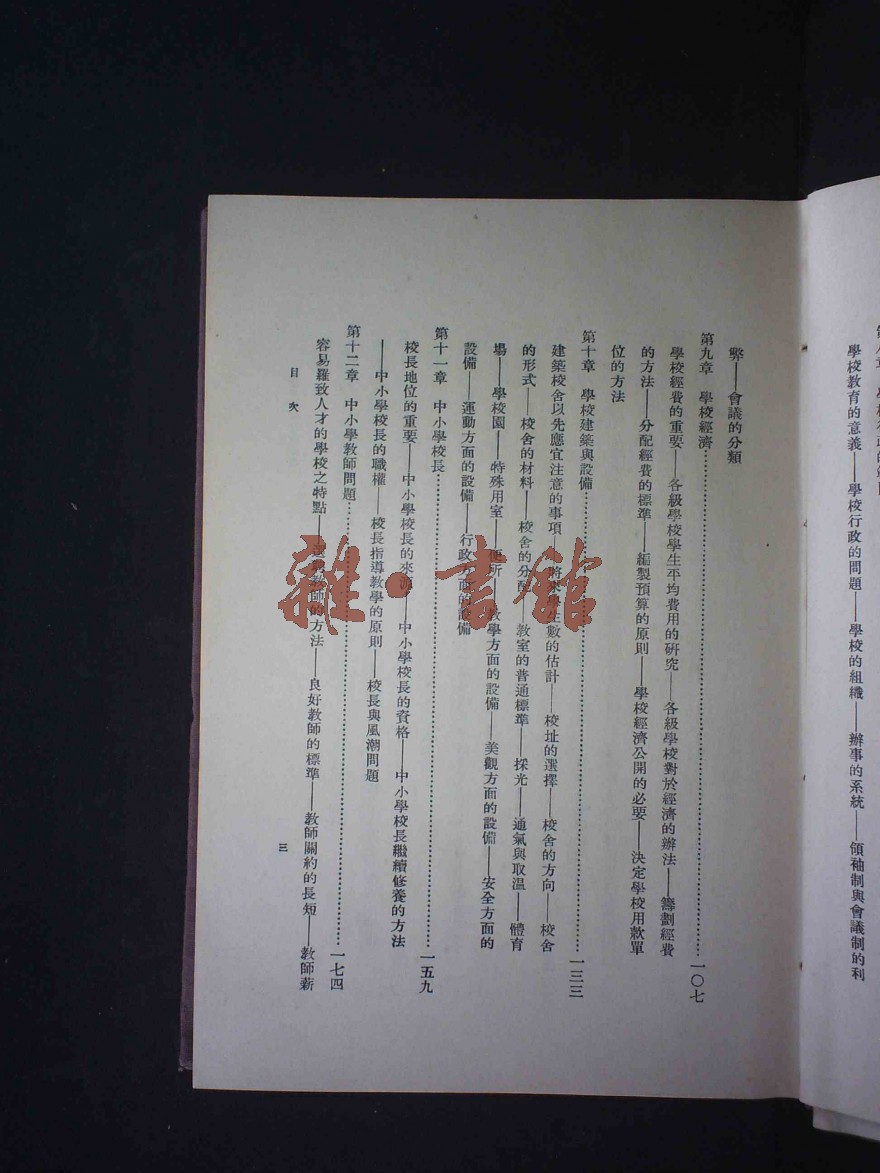 學校教育的意義——學校行政的問題——學校的組織——辦事的系統——領袖制與會議制的利
弊——會議的分類
第九章　學校經濟……一〇七
學校經費的重要——各級學校學生平均費用的研究——各級學校對於經濟的辦法——籌劃經費
的方法——分配經費的標準——編製預算的原則——學校經濟公開的必要——決定學校用款單
位的方法
第十章　學校建築與設備……一三三
建築校舍以先應宜注意的事項——將來學生數的估計——校址的選擇——校舍的方向——校舍
的形式——校舍的材料——校舍的分配——教室的普通標準——採光——通氣與取溫——體育
場——學校園——特殊用室——便所——教學方面的設備——美觀方面的設備——安全方面的
設備——運動方面的設備——行政方面的設備
第十一章　中小學校長……一五九
校長地位的重要——中小學校長的來源——中小學校長的資格——中小學校長繼續修養的方法
——中小學校長的職權——校長指導教學的原則——校長與風潮問題
第十二章　中小學教師問題……一七四
容易羅致人才的學校之特點——選聘教師的方法——良好教師的標準——教師關約的長短——教師薪
目次
三
雜·書館